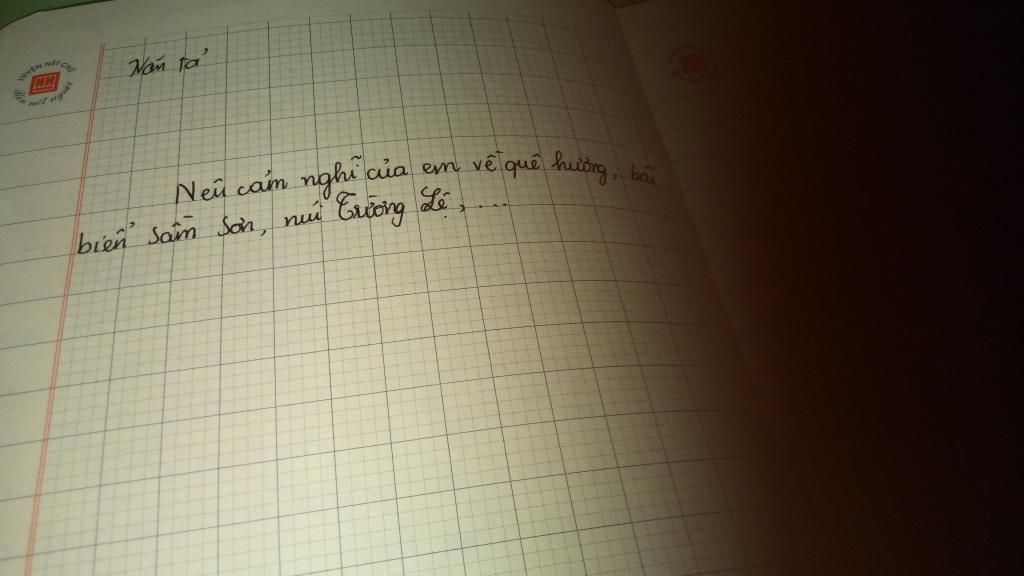 Văn tả
Nêu cảm nghĩ của em về quê hương, bãi
biển Sầm Sơn, núi Trường Lệ, ...
LUYỆN NÉT CHỮ
RÈN NẾT NGƯỜI